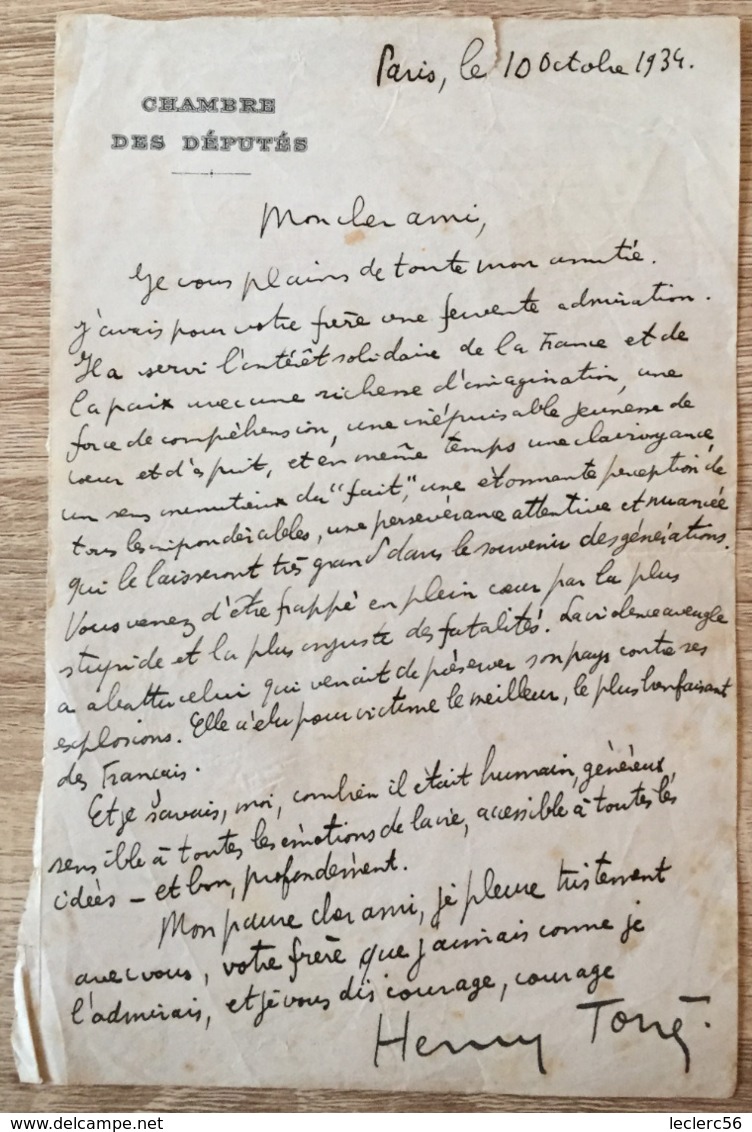 Paris, le 10 Octobre 1934.
CHAMBRE
DES DÉPUTÉS
Mon cher ami,
Je vous plains de toute mon amitié.
J'avais pour votre frère une fervente admiration.
Il a servi l'intérêt solidaire de la France et de
la paix avec une richesse d'imagination, une
force de compréhension, une inépuisable jeunesse de
cœur et d'esprit, et en même temps une clairvoyance,
un sens minutieux du "fait", une étonnante perception de
tous les impondérables, une persévérance attentive et nuancée
qui le laisseront très grand dans le souvenir des générations.
Vous venez d'être frappé en plein cœur par la plus
stupide et la plus injuste des fatalités. La violence aveugle
a abattu celui qui venait de préserver son pays contre ses
explosions. Elle a élu pour victime le meilleur, le plus bienfaisant
des Français.
Et je savais, moi, combien il était humain, généreux,
sensible à toutes les émotions de la vie, accessible à toutes les
idées – et bon, profondément.
Mon pauvre cher ami, je pleure tristement
avec vous, votre frère que j'aimais comme je
l'admirais, et je vous dis courage, courage
Henry Torrès.
leclerc56